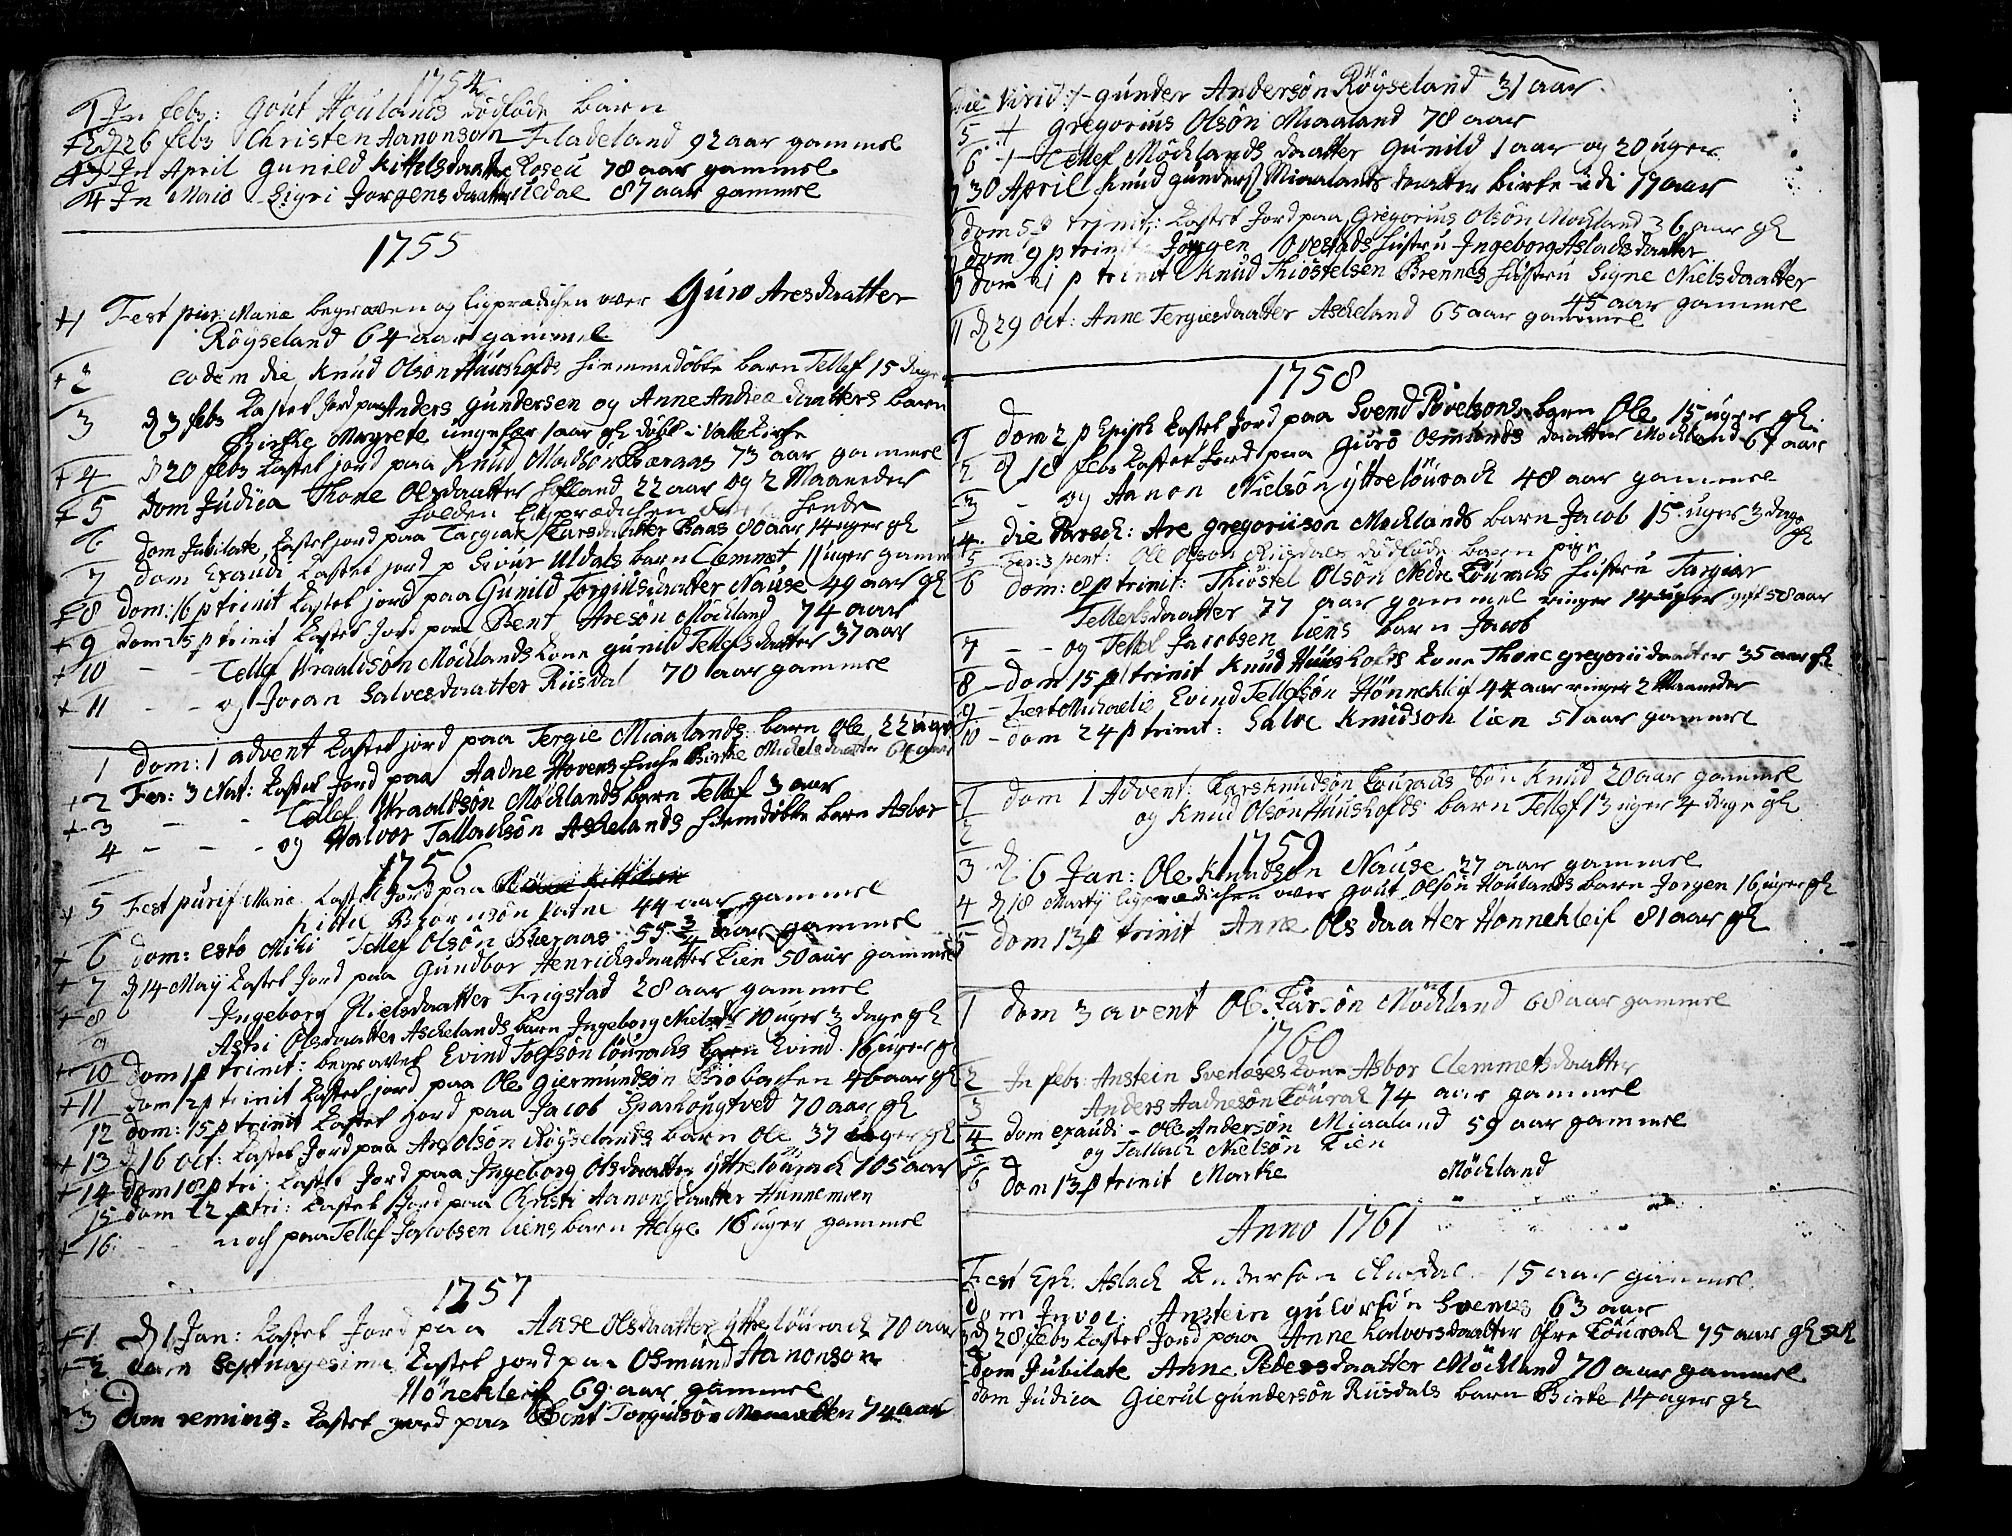 1754
1 In febr: Gout Houlands dödföde barn
+2 d 26 febr Christen Aanonson Fladeland 92 aar gammel
+3 In April Gunild Kittelsdaatter 78 aar gammel
4 In Maio Sigri Jorgensdaatter Uldal 87 aar gammel
1755
+1 Fest pur: Mariæ begraven og ligprædichen over Guro Aresdaatter
Röyseland 64 aar gammel
+2 eodem die Knud Olson Huusholts hiemmedöbte barn Tellef 15 dage
3 d 3 febr Kastet jord paa Anders Gundersen og Anne Andrea daatters barn
Birthe Margrete ungefær 1 aar gl döbt i Valle Kirke
+4 d 20 febr Kastet jord paa Knud Madsön Bæraas 73 aar gammel
+5 Dom Judica Thone Olsdaatter Hofland 22 aar og 2 Maaneder
holden ligprædichen over hende
6 Dom Jubilate Kastet jord paa Targier Larsdaatter Baas 80 aar 14 uger gl
7 dom Exaudi Kastet jord p Sivur Uldals barn Clemmet 11 uger gamm
+8 dom: 16 p trinit Kastet jord paa Gunild Torgiusdaatter Nause 49 aar gl
+9 dom 25 p trinit Kastet jord paa Bent Aresön Möckland 74 aar
+10 - - Tellef Wraaldsön Möcklands Kone Gunild Tellefsdaatter 37 aar
+11 - - og Joran Salvesdaatter Riisdal 70 aar gammel
1 Dom: 1 advent Kastet jord paa Tergie Miaalands barn Ole 22 uger
+2 Fer: 3 Nat: Kastet Jord paa Aadne Hovens Enche Birthe Michelsdaatter 64 aar
+3 - - - Tellef Wraaldsön Möcklands barn Tellef 3 aar
4 - - - og Halvor Tallachsön Askelands hiemdöbte barn Asbor
1756
+5 Fest purif: Mariæ Kastet Jord paa
Kittel Biörnsön 44 aar gammel
+6 dom: esto Mihi Tellef Olsön Bæraas 55 3/4 aar gammel
+7 d 14 Maij Kastet Jord paa Gundbor Henrichsdaatter Lien 50 aar gammel
+8 Ingeborg Nielsdaatter Frigstad 28 aar gammel
9 Astri Olsdaatter Askelands barn Ingeborg Nielsdr 10 uger 3 dage gl
+10 dom 1 p trinit: begravet Evind Tolfsön Löuracks barn Evind 16 uger gl
+11 dom 12 p trinit Kastet jord paa Ole Giermundsön Biobachen 46 aar gl
12 dom: 15 p trinit Kastet jord paa Jacob Sparhougtved 70 aar gl
+13 d 16 Oct: Kastet Jord paa Are Olsön Röyselands barn Ole 37 uger gl
+14 dom 18 p tri: Kastet Jord paa Ingeborg Olsdaatter yttre Löurack 105 aar
15 dom 22 p tri: Kastet Jord paa Christi Aanonsdaatter Hunnemoen
+16 - - noch paa Tellef Jacobsen Liens barn Helge 16 uger gammel
1757
+1 d 1 Jan: Kastet Jord paa Aase Olsdaatter yttre Löurack 70 aar
+2 dom Septuagesima Kastet jord paa Osmund Aanonson
Hönekleif 69 aar gammel
3 Dom reminis: Kastet jord paa Bent Torgiusön 74 aar
Die Virid: + Gunder Andersön Röyseland 31 aar
5 + Gregorius Olsön Miaaland 78 aar
6 + Tellef Möcklands daatter Gunild 1 aar og 20 uger
7 30 April Knud Gunders Miaalands daatter Birte 17 aar
dom 5 p trinit: Kastet Jord paa Gregorius Olsön Möckland 36 aar gl
dom 9 p trinit: Jörgen Ovestads Hustru Ingeborg Aslachsdaatter
dom 21 p trinit Knud Thiostelsen Brennes Hustru Signe Nielsdaatter
45 aar gammel
11 d 29 Oct: Anne Tergiesdaatter Askeland 65 aar gammel
1758
+1 Dom 2 p Epiph Kastet Jord paa Svend Povelsons barn Ole 15 uger gl
2 d 18 febr Kastet Jord paa Guro Osmunds daatter Möckland 67 aar
3 - og Aanon Nielsön yttre Löurack 48 aar gammel
4 die Parasc: Are Gregoriison Möcklands barn Jacob 15 uger 3 dage gl
5 Fer: 3 pent: Ole Olson Riisdals dödföde barn pige
6 dom: 8 p trinit: Thiöstel Olsön Nedre Löuracks Hustru Targier
Tellefsdaatter 77 aar gammel ringer 14 uger gift 58 aar
7 - - og Tellef Jacobsen Liens barn Jacob
8 - Dom 15 p trinit Knud Huusholts Kone Thone Gregorii daatter 35 aar gl
9 - Festo Michaelis Evind Tellefsön Hönnekleif 44 aar ringer 2 Maaneder
10 - dom 24 p trinit: Salve Knudson Lien 51 aar gammel
+1 dom 1 Advent: Lars Knudsön Löuracks Sön Knud 20 aar gammel
2 og Knud Olsön Huusholts barn Tellef 13 uger 4 dage gl
1759
3 d: 6 Jan: Ole Knudson Nause 27 aar gammel
4 d 18 Martij ligprædichen over Gout Olsön Houlands barn Jorgen 16 uger gl
5 dom 13 p trinit Anne Olsdaatter Honnekleif 81 aar gl
1 Dom 3 avent Ole Larsön Möckland 68 aar gammel
1760
2 In febr: Anstein Svenæses Kone Asbor Clemmetsdaatter
3 Anders Aadnesön Löurack 74 aar gammel
4 dom exaudi - Ole Andersön Miaaland 59 aar gammel
5 og Tallach Nielsön Lien
6 Dom 13 p trinit Marthe Möckland
Anno 1761
Fest Eph. Aslach Andersön 15 aar gammel
dom Invoc. Anstein Gulovsön Svenæs 63 aar
3 d 28 febr Kastet Jord paa Anne Halvorsdaatter Öfre Löurack 75 aar gl
dom Jubilate Anne Pedersdaatter Möckland 70 aar gammel
dom Judica Gierul Gundersön Riisdals barn Birte 14 uger gl